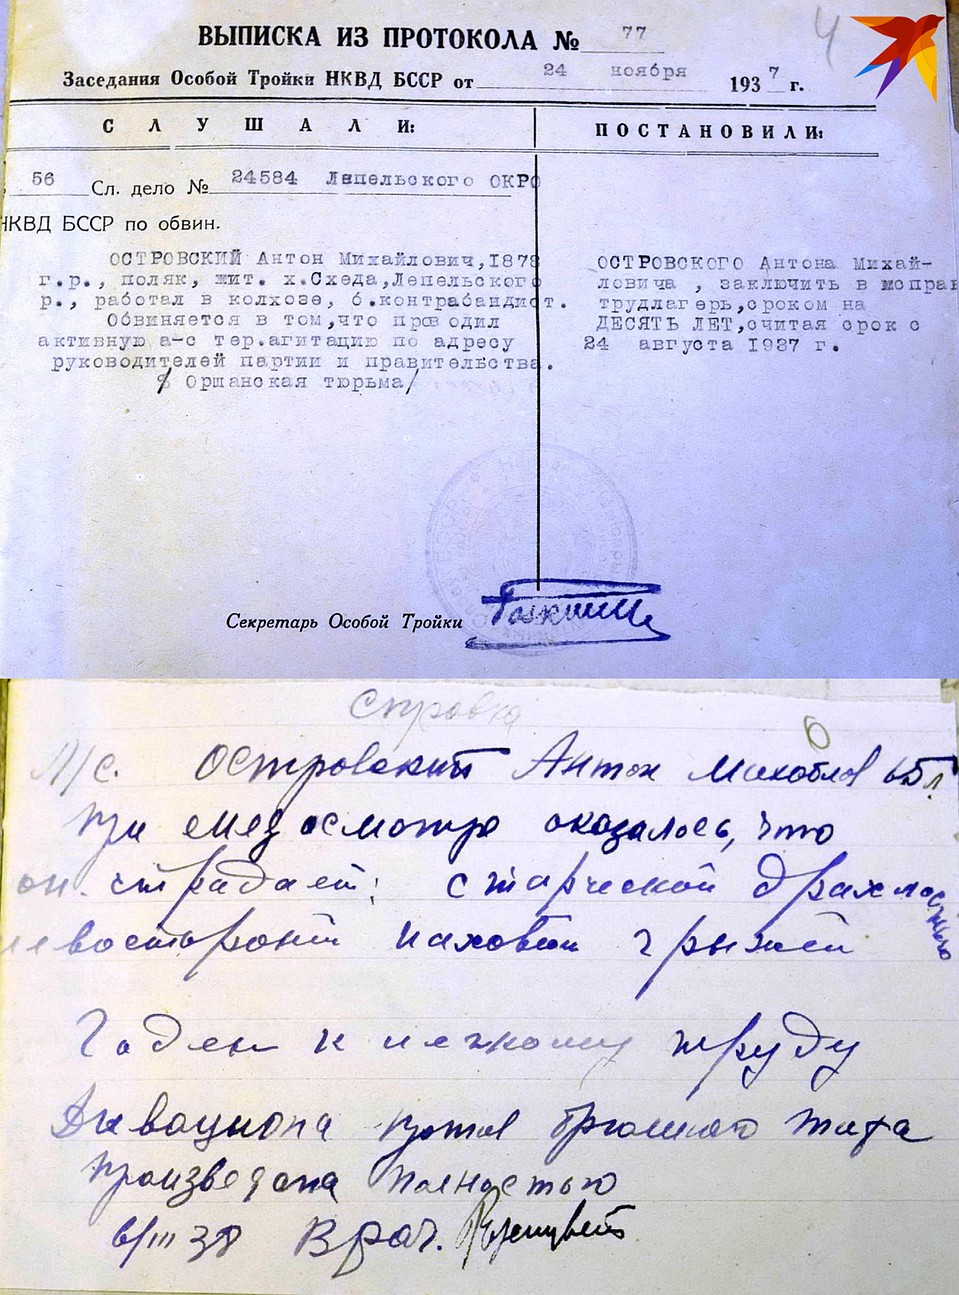 4
ВЫПИСКА ИЗ ПРОТОКОЛА № 77
Заседания Особой Тройки НКВД БССР от 24 ноября 1937 г.
СЛУШАЛИ:
56 Сл. дело № 24584 Лепельского ОКРО
НКВД БССР по обвин.
ОСТРОВСКИЙ Антон Михайлович,1878
г.р., поляк, жит. х.Схеда,Лепельского
р., работал в колхозе, б.контрабандист.
Обвиняется в том,что проводил
активную а-с тер.агитацию по адресу
руководителей партии и правительства.
/ Оршанская тюрьма/
ПОСТАНОВИЛИ:
ОСТРОВСКОГО Антона Михай-
ловича , заключить в исправ
трудлагерь,сроком на
ДЕСЯТЬ ЛЕТ,считая срок с
24 августа 1937 г.
Секретарь Особой Тройки
Справка
6
Л/с. Островский Антон Михайлов 65л.
при медосмотре оказалось, что
он страдает: старческой дряхлостью
левосторонней паховой грыжей
Годен к легкому труду
против брюшного тифа
произведена полностью
6/III 38 Врач.